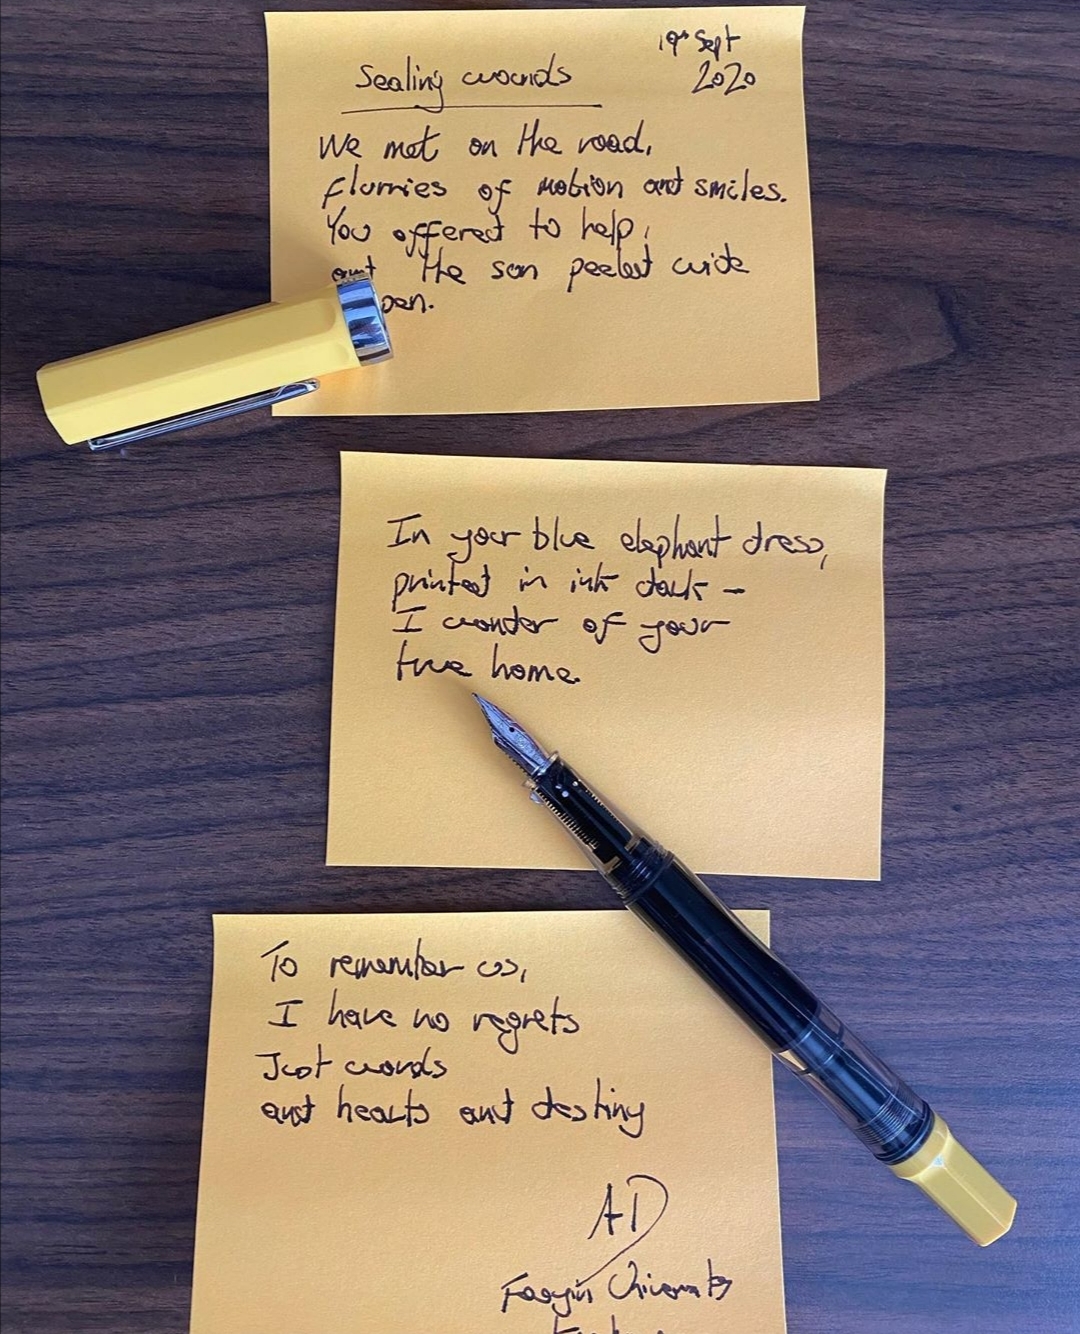 19th Sept
2020
Sealing wounds
We met on the road,
flurries of motion and smiles.
You offered to help,
and the sun peeled wide
pen.
In your blue elephant dress,
printed in ink dark –
I wonder of your
true home.
To remember us,
I have no regrets
Just words
and hearts and destiny
AD